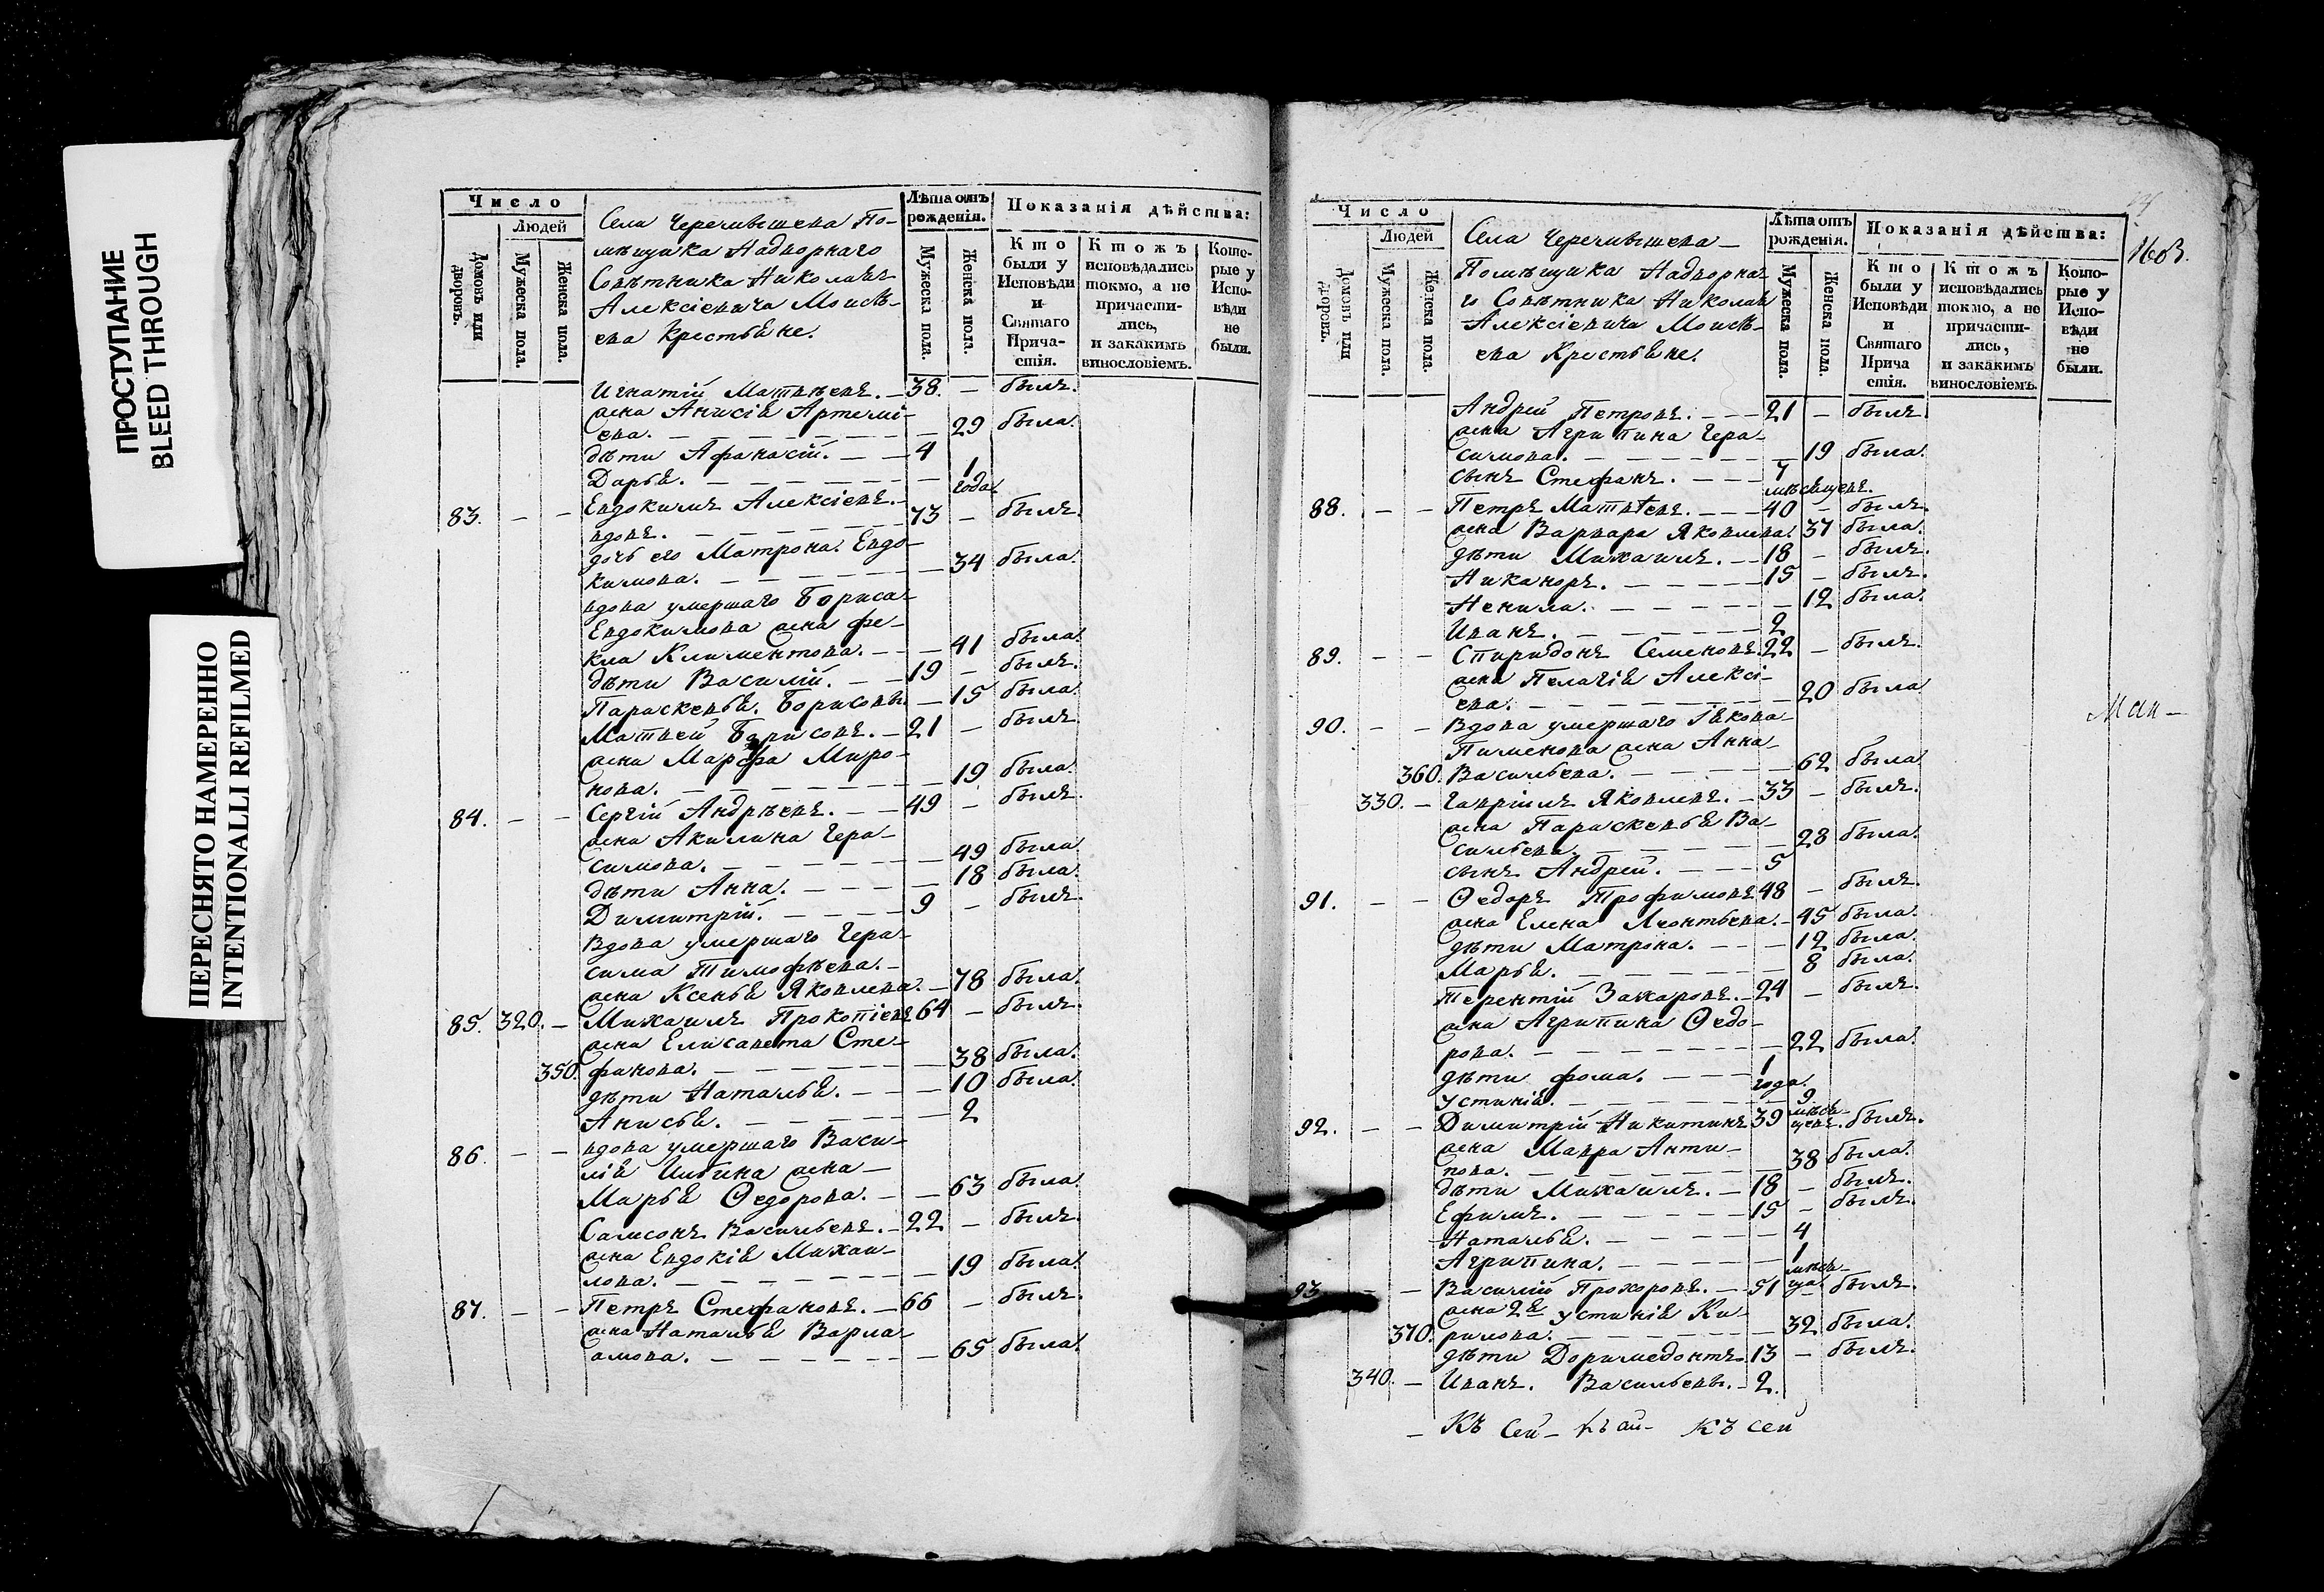 ПРОСТУПАНИЕ
BLEED THROUGH
ПЕРЕСНЯТО НАМЕРЕННО
INTENTIONALLI REFILMED
Число
Людей
Домовъ или дворовъ.
Мужеска пола.
Женска пола.
Села Черемышева По-
мѣщика Надворнаго
Совѣтника Николая
Алексіевича Моисѣ-
ева Крестьяне.
Лѣта отъ рожденія.
Мужеска пола.
Женска пола.
Показанія дѣйства:
Кто были у Исповѣди и Святаго Прича-стія.
Ктожъ исповѣдались токмо, а не причасти-лись, и закакимъ винословіемъ.
Кото-рые у Испо-вѣди не были.
Игнатій Матвѣевъ. — 38. — былъ.
жена Анисія Артемі-
ева. — 29 была.
дѣти Афанасій. — 4
Дарья. — 1 года.
83. — — Евдокимъ Алексіевъ.
вдовъ. — 73 — былъ.
дочь его Матрона Евдо-
кимова. — 34 была.
вдова умершаго Бориса
Евдокимова жена Фе-
кла Климентова. — 41 была.
дѣти Василій. — 19 — былъ.
Параскевья. Борисовы. — 15 была.
Матвей Борисовъ. — 21 — былъ.
жена Марфа Миро-
нова. — 19 была.
84. — — Сергій Андрѣевъ. — 49 — былъ.
жена Акилина Гера-
симова. — 49 была.
дѣти Анна. — 18 была.
Димитрій. — 9 — былъ.
Вдова умершаго Гера-
сима Тимофѣева.
жена Ксенья Яковлева. — 78 была.
85. 320. — Михаилъ Прокопіевъ 64 — былъ.
жена Елисавета Сте-
350. фанова. — 38 была.
дѣти Наталья. — 10 была.
Анисья. — 2
86. — — вдова умершаго Васи-
лія жена
Марья Ѳедорова. — 63 была.
Самсонъ Васильевъ. — 22 — былъ.
жена Евдокія Михаи-
лова. — 19 была.
87. — — Петръ Стефановъ. — 66 — былъ.
жена Наталья Варла-
амова. — 65 была.
1603.
Число
Людей
Домовъ или дворовъ.
Мужеска пола.
Женска пола.
Села Черемышева
Помѣщика Надворна-
го Совѣтника Николая
Алексіевича Моисѣ-
ева Крестьяне.
Лѣта отъ рожденія.
Мужеска пола.
Женска пола.
Показанія дѣйства:
Кто были у Исповѣди и Святаго Прича стія.
Ктожъ исповѣдались токмо, а не причасти-лись, и закакимъ винословіемъ.
Кото-рые у Испо-вѣди не были.
Андрей Петровъ. — 21 — былъ.
жена Агрипина Гера-
симова. — 19 была.
сынъ Стефанъ. — 7 мѣсяцевъ.
88. — — Петръ Матвѣевъ. — 40 — былъ.
жена Варвара Яковлева. 37 была.
дѣти Михаилъ. — 18 — былъ.
Никаноръ. — 15 — былъ.
Ненила. — 12 была.
Иванъ. — 2
89. — — Спиридонъ Семеновъ. 22 — былъ.
жена Пелагія Алексі-
ева. — 20 была
90. — — Вдова умершаго Якова
Пименова жена Анна
360. Васильева. — 62 была
Мак —
330. — Гавріилъ Яковлевъ. — 33 — былъ.
жена Параскевья Ва-
сильева. — 28 была.
сынъ Андрей. — 5
91. — — Ѳедоръ Трофимовъ 48 — былъ.
жена Елена Леонтьева. — 45 была.
дѣти Матрона. — 12 была.
Марья. — 8 была.
Терентій Захаровъ. — 24 — былъ.
жена Агрипина Ѳедо-
рова. — 22 была.
дѣти Фома. — 1 года.
Устинія. — 9 мѣся-цевъ.
92. — — Димитрій Никитинъ 39 былъ.
жена Мавра Анти-
пова. — 38 была.
дѣти Михаилъ. — 18 — былъ.
Ефимъ. — 15 — былъ.
Наталья. — 4
Агрипина. — 1 мѣся-ца.
93. — — Василій Прохоровъ. — 51 — былъ.
жена 2я Устинія Ки-
370. рилова. — 32 была.
дѣти Доримедонтъ. 13 — былъ.
340. — Иванъ. Васильевы. — 2.
— Къ сей — къ ай — къ сей